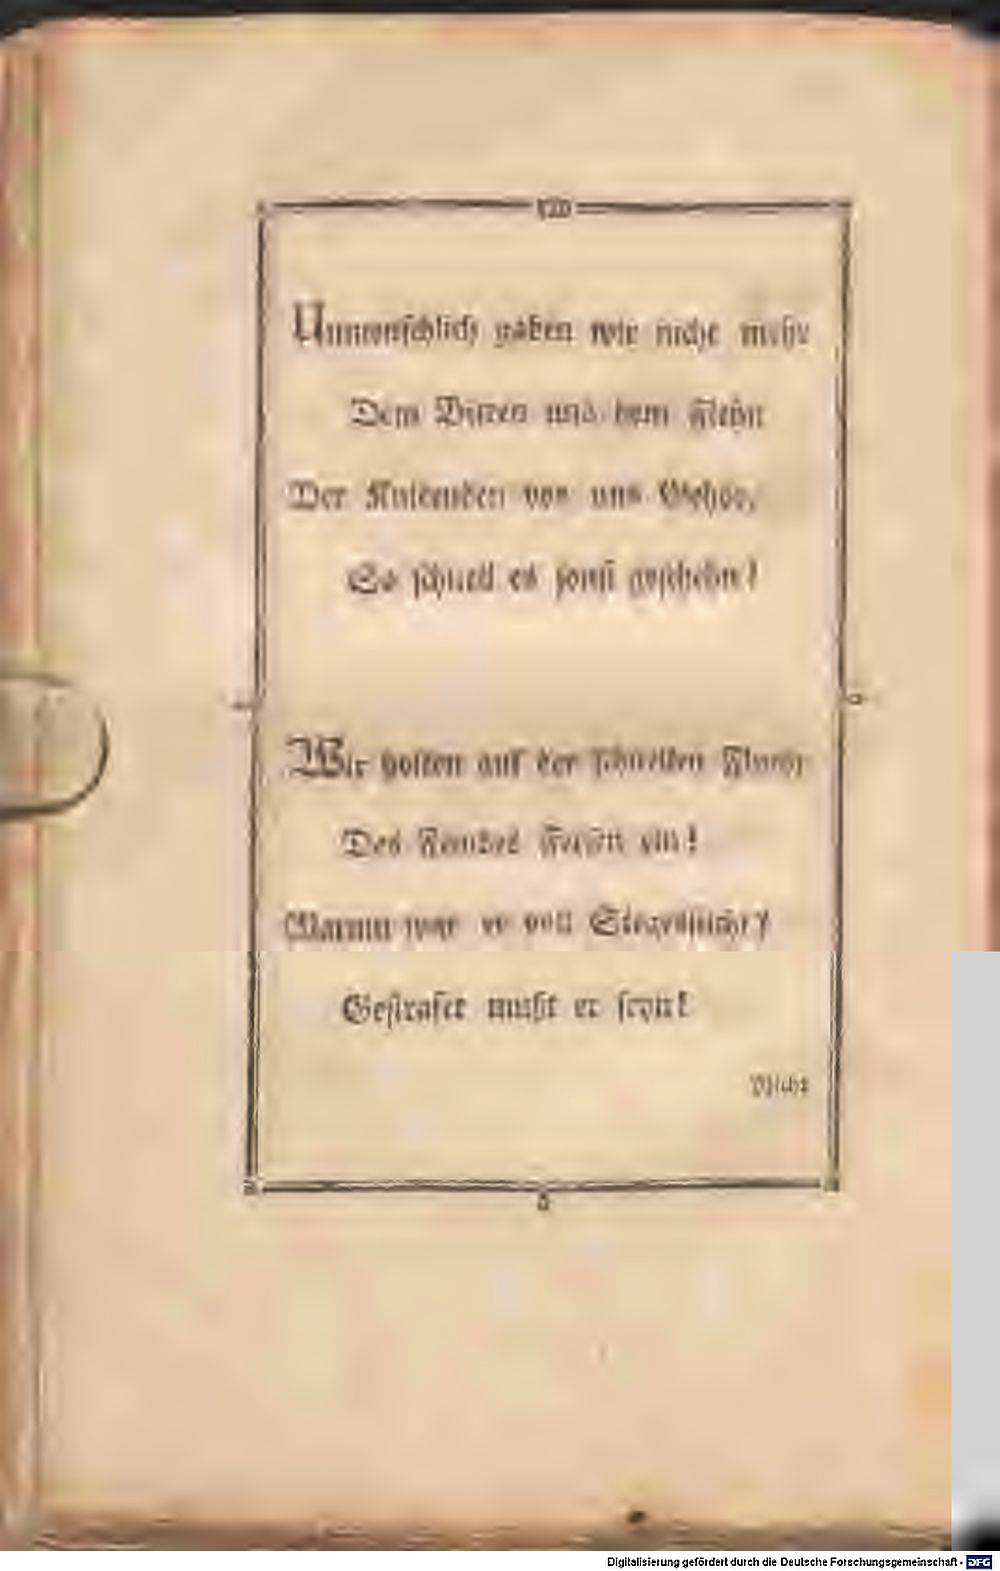 Unmenschlich gaben wir nicht mehr
Dem Bitten und dem Flehn
Der Knieenden vor uns Gehör,
So schnell es sonst geschehn!
Wir holten auf der schnellen Flucht
Des Feindes Fersen ein!
Warum war er voll
Gestrafet mußt er seyn!
Nicht
Digitalisierung gefördert durch die Deutsche Forschungsgemeinschaft - DFG